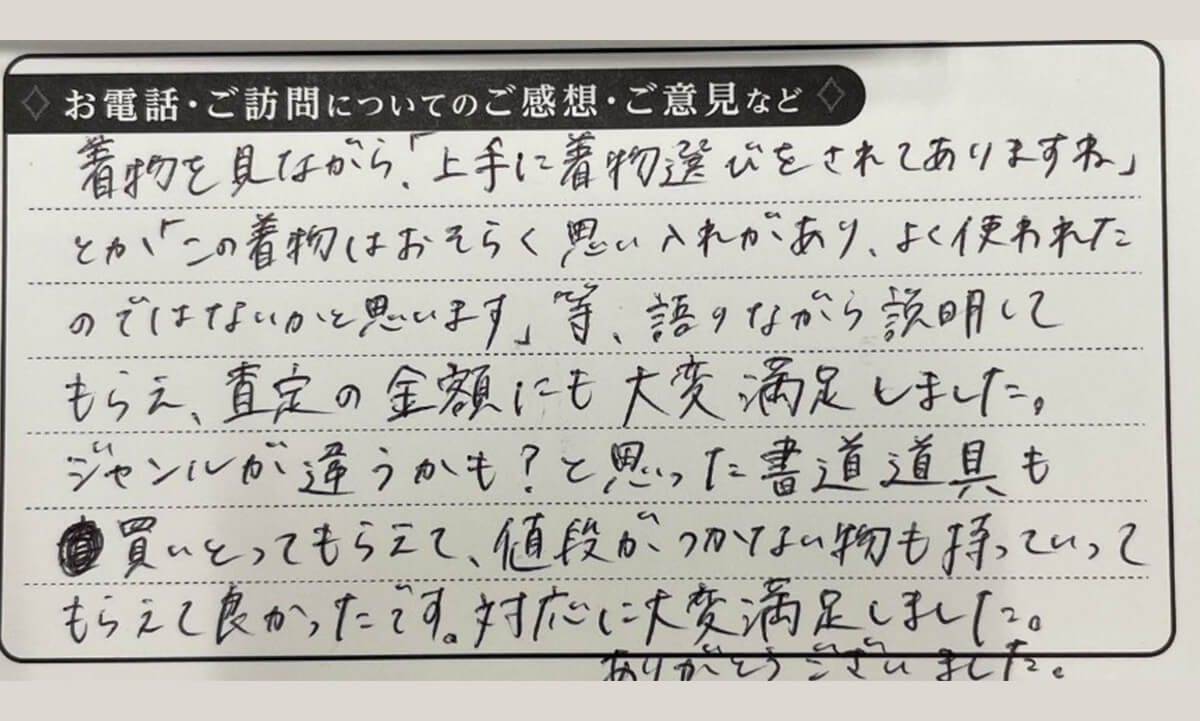 お電話・ご訪問についてのご感想・ご意見など
着物を見ながら、「上手に着物選びをされてありますね」
とか「この着物はおそらく思い入れがあり、よく使われた
のではないかと思います」等、語りながら説明して
もらえ、査定の金額にも大変満足しました。
ジャンルが違うかも?と思った書道道具も
買いとってもらえて、値段がつかない物も持っていって
もらえて良かったです。対応に大変満足しました。
ありがとうございました。